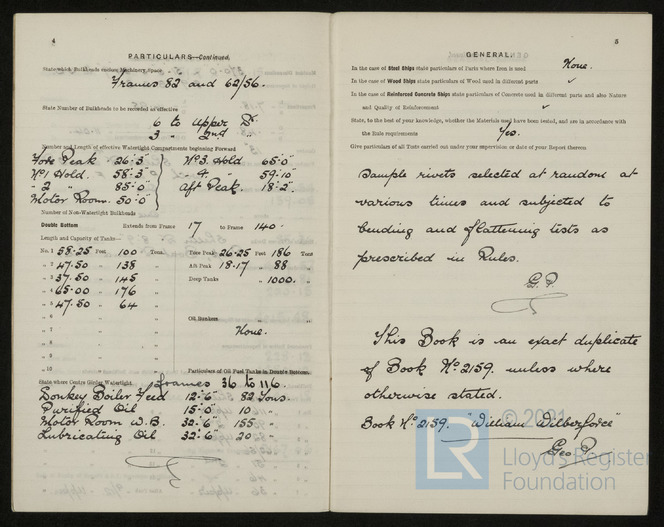 4
PARTICULARS—Continued.
State which Bulkheads enclose Machinery Space
Frames 82 and 62/56.
State Number of Bulkheads to be recorded as effective
6 to Upper Dk
3 " 2nd "
Number and Length of effective Watertight Compartments beginning Forward
Fore Peak - 26·3" No 3. Hold 65·0"
No 1 Hold. 58·3" " 4. " 59·10"
" 2 " 85·0" Aft Peak. 18·2"
Motor Room. 50·0"
Number of Non-Watertight Bulkheads
Double Bottom Extends from Frame 17 to Frame 140
Length and Capacity of Tanks—
No. 1 58·25 Feet 100 Tons. Fore Peak 26·25 Feet 186 Tons
" 2 47·50 " 138 " Aft Peak 18·17 " 88 "
" 3 37·50 " 145 " Deep Tanks " 1000. "
" 4 65·00 " 176 "
" 5 47·50 " 64 "
" 6 " " Oil Bunkers "
" 7 " " None.
" 8 " "
" 9 " "
" 10 " Particulars of Oil Fuel Tanks in Double Bottom.
State where Centre Girder Watertight Frames 36 to 116.
Donkey Boiler Feed 12·6" 82 Tons.
Purified Oil 15·0" 10 "
Motor Room W.B. 32·6" 155 "
Lubricating Oil 32·6 20 "
5
GENERAL.
In the case of Steel Ships state particulars of Parts where Iron is used None.
In the case of Wood Ships state particulars of Wood used in different parts ✓
In the case of Reinforced Concrete Ships state particulars of Concrete used in different parts and also Nature
and Quality of Reinforcement ✓
State, to the best of your knowledge, whether the Materials used have been tested, and are in accordance with
the Rule requirements Yes.
Give particulars of all Tests carried out under your supervision or date of your Report thereon
Sample rivets selected at random at
various times and subjected to
bending and flattening tests as
prescribed in Rules.
G.P.
This Book is an exact duplicate
of Book No 2159. unless where
otherwise stated.
Book No 2159. "William Wilberforce"
Geo P.
© 2021
LR
Lloyd's Register
Foundation